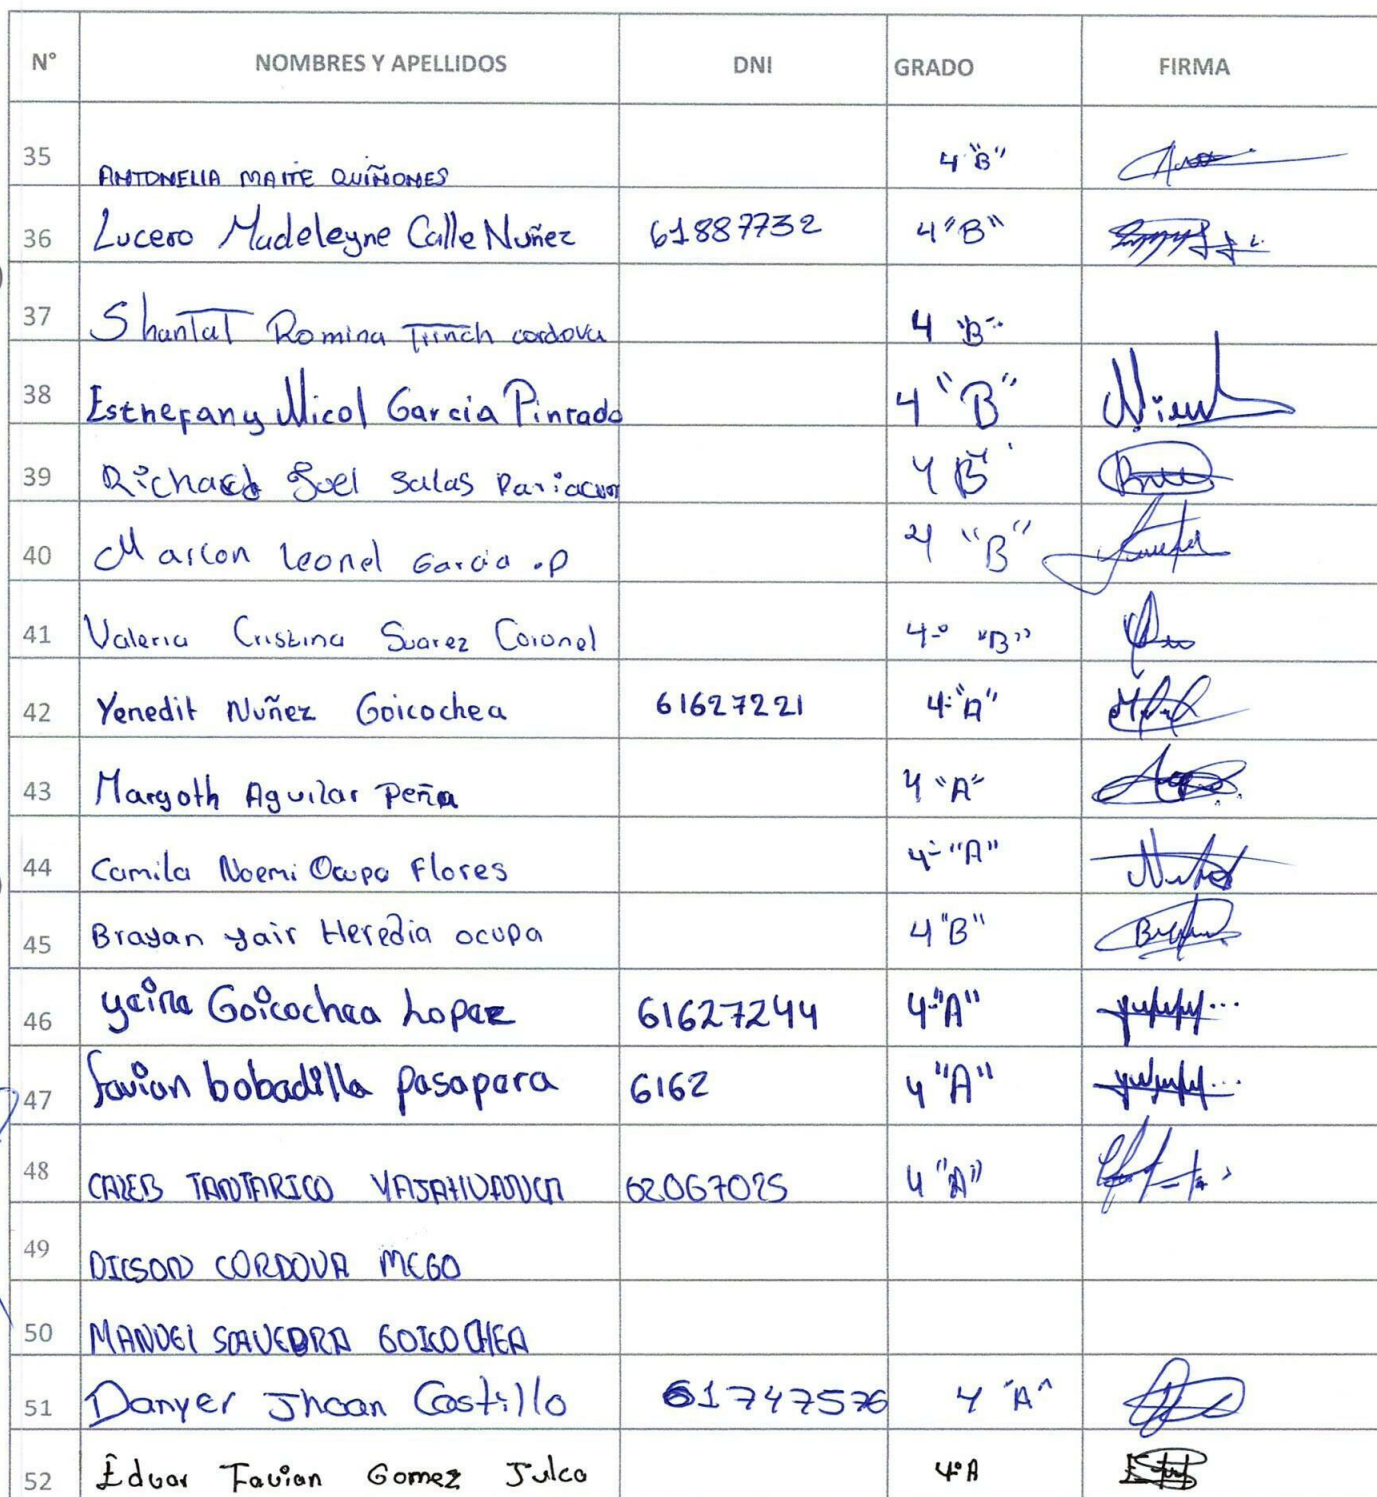 N° NOMBRES Y APELLIDOS DNI GRADO FIRMA
35 ANTONELLA MAITE QUIÑONES 4 "B"
36 Lucero Madeleyne Calle Nuñez 61887732 4 "B"
37 Shantal Romina cordova 4 "B"
38 Esthefany Nicol Garcia Pintado 4 "B"
39 Richard Joel Salas 4 B
40 Marlon leonel Garcia .P 4 "B"
41 Valeria Cristina Suarez Coronel 4° "B"
42 Yenedit Nuñez Goicochea 61627221 4° "A"
43 Margoth Aguilar Peña 4 "A"
44 Camila Noemi Ocupa Flores 4° "A"
45 Brayan yair Heredia ocupa 4 "B"
46 yeina Goicochea Lopez 61627244 4° "A"
47 favian bobadilla pasapera 6162 4 "A"
48 CALEB TANTARICO 62067025 4 "A"
49 DICSON CORDOVA MEGO
50 MANUEL SAAVEDRA GOICOCHEA
51 Danyer Jhoan Castillo 61747576 4 "A"
52 Eduar Favian Gomez Julca 4° A